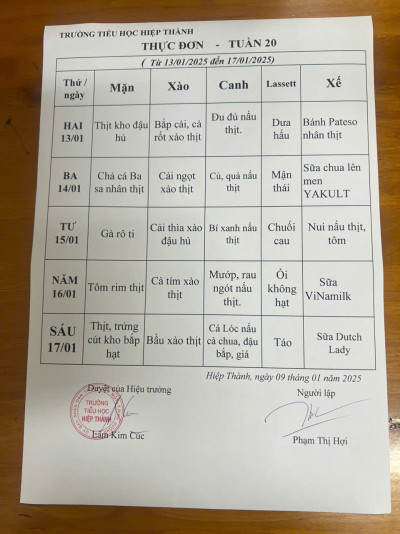 TRƯỜNG TIỂU HỌC HIỆP THÀNH
THỰC ĐƠN - TUẦN 20
( Từ 13/01/2025 đến 17/01/2025)
Thứ / ngày Mặn Xào Canh Lassett Xế
HAI 13/01 Thịt kho đậu hủ Bắp cải, cà rốt xào thịt Đu đủ nấu thịt. Dưa hấu Bánh Pateso nhân thịt
BA 14/01 Chả cá Ba sa nhân thịt Cải ngọt xào thịt Củ, quả nấu thịt Mận thái Sữa chua lên men YAKULT
TƯ 15/01 Gà rô ti Cải thìa xào đậu hủ Bí xanh nấu thịt Chuối cau Nui nấu thịt, tôm
NĂM 16/01 Tôm rim thịt Cà tím xào thịt Mướp, rau ngót nấu thịt. Ổi không hạt Sữa ViNamilk
SÁU 17/01 Thịt, trứng cút kho bắp hạt Bầu xào thịt Cá Lóc nấu cà chua, đậu bắp, giá Táo Sữa Dutch Lady
Hiệp Thành, ngày 09 tháng 01 năm 2025
Duyệt của Hiệu trưởng Người lập
TRƯỜNG
TIỂU HỌC
HIỆP THÀNH
Lâm Kim Cúc Phạm Thị Hợi